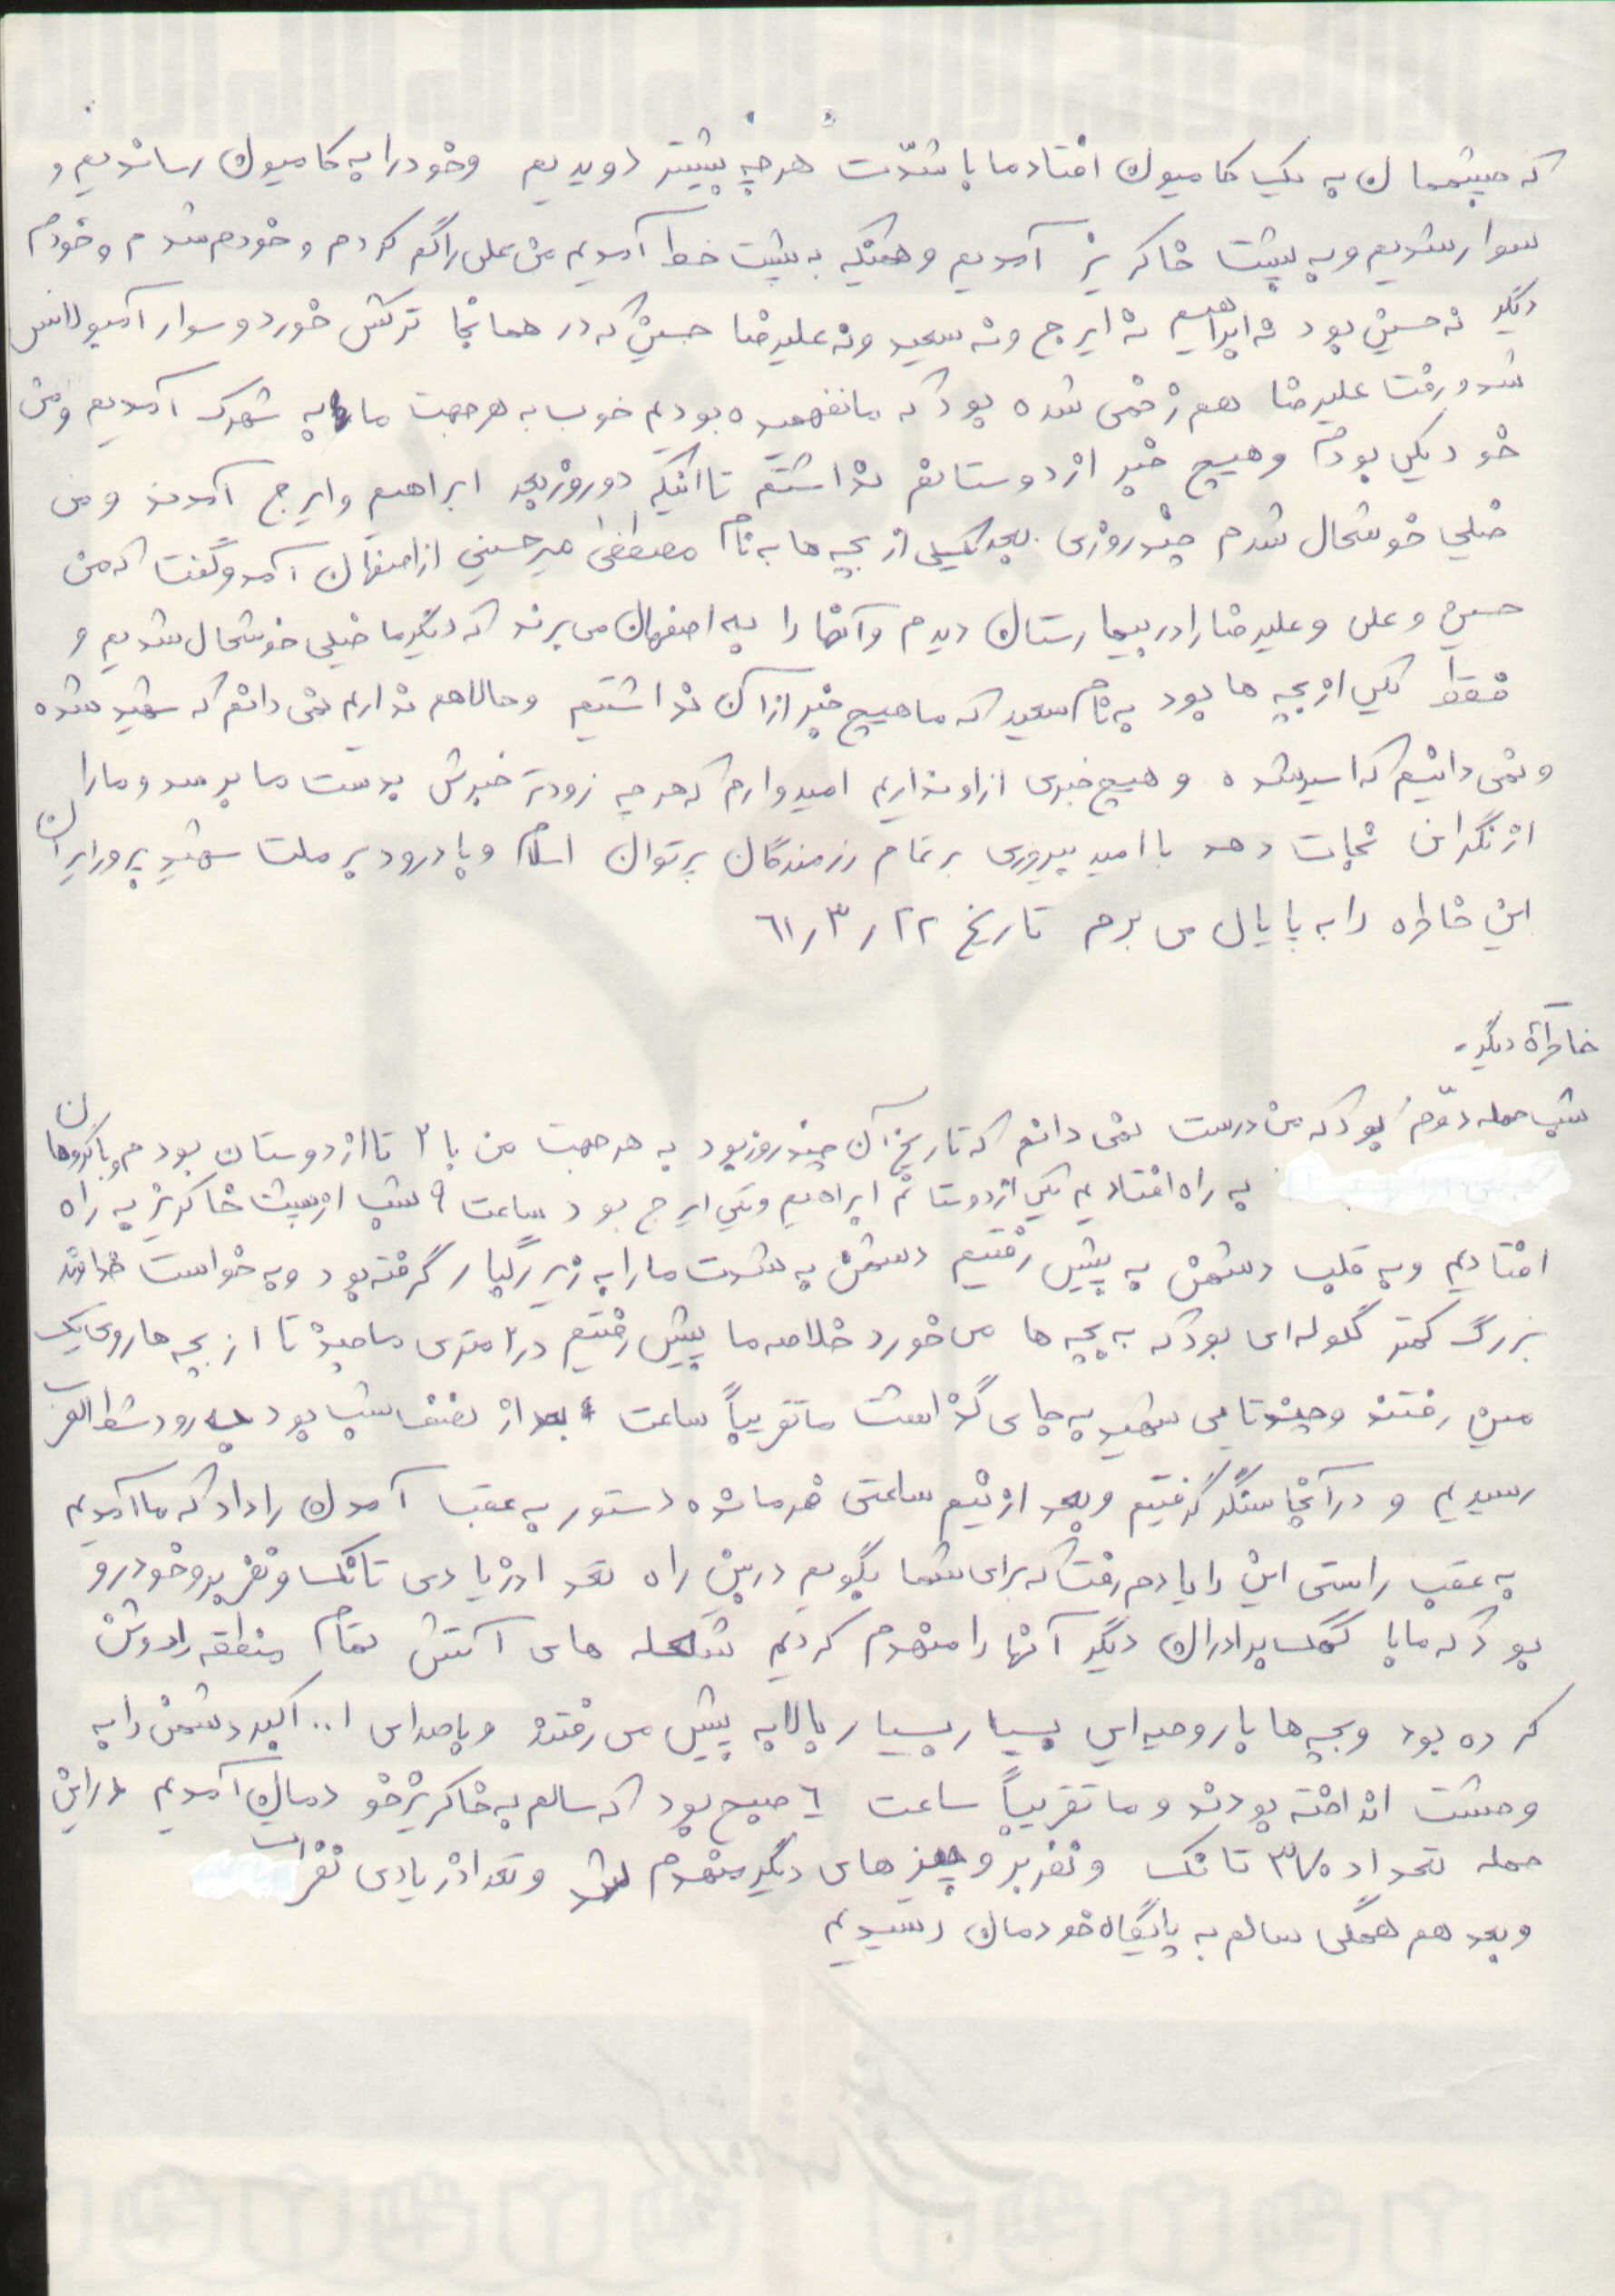 که چشممان به یک کامیون افتاد ما با شدّت هر چه بیشتر دویدیم وخود را به کامیون رساندیم و
سوار شدیم و به پشت خاکریز آمدیم و هنکیه به پشت خط آمدیم من علی را گم کردم و خودم شدم و خودم
دیگر نه حسین بود نه ابراهیم نه ایرج ونه سعید ونه علیرضا حسین که در همانجا ترکش خورد و سوار آمبولانس
شد ورفت علیرضا هم زخمی شده بود که ما نفهمیده بودیم خوب به هر جهت ما به شهرک آمدیم و من
خودیکی بودم وهیچ خبر از دوستانم نداشتم تا اینکه دو روز بعد ابراهیم وایرج آمدند و من
خیلی خوشحال شدم چند روزی بعد یکی از بچه ها به نام مصطفی میرحسینی از اصفهان آمد و گفت که من
حسین و علی و علیرضا را در بیمارستان دیدم وآنها را به اصفهان می برند که دیگر ما خیلی خوشحال شدیم و
فقط یکی از بچه ها بود به نام سعید که ما هیچ خبر از آن نداشتیم وحالا هم نداریم نمی دانم که شهید شده
و نمی دانیم که اسیر شده و هیچ خبری از او نداریم امیدوارم که هر چه زودتر خبرش بدست ما برسد و ما را
از نگرانی نجات دهد با امید پیروزی بر تمام رزمندگان پرتوان اسلام وبا درود بر ملت شهید پرور ایران
این خاطره را به پایان می برم تاریخ ۶۱٫۳٫۲۲
خاطرهٔ دیگر-
شب حمله دوّم بود که من درست نمی دانم که تاریخ آن چند روز بود به هر جهت من با ۲ تا از دوستان بودم وبا گروهان
به راه افتادیم یکی از دوستانم ابراهیم ویکی ایرج بود ساعت ۹ شب از پشت خاکریز به راه
افتادیم وبه قلب دشمن به پیش رفتیم دشمن به شدت ما را به زیر رگبار گرفته بود وبه خواست خداوند
بزرگ کمتر گلوله ای بود که به بچه ها می خورد خلاصه ما پیش رفتیم در ۲ متری ما چند تا از بچه ها روی یک
مین رفتند وچند تایی شهید به جای گذاشت ما تقریباً ساعت بعد از نصف شب بود به رود شط العرب
رسیدیم و در آنجا سنگر گرفتیم و بعد از نیم ساعتی فرمانده دستور به عقب آمدن را داد که ما آمدیم
به عقب راستی این را یادم رفت که برای شما بگویم در بین راه تعداد زیادی تانک ونفربر و خودرو
بود که ما با کمک برادران دیگر آنها را منهدم کردیم شعله های آتش تمام منطقه را روشن
کرده بود وبچه ها با روحیه ایی بسیار بسیار بالا به پیش می رفتند و با صدای ا.. اکبر دشمن را به
وحشت انداخته بودند و ما تقریباً ساعت ٦ صبح بود که سالم به خاکریز خودمان آمدیم در این
حمله تعداد تانک ونفربر و چیزهای دیگر منهدم شد و تعداد زیادی نفرات
و بعد هم همگی سالم به پایگاه خودمان رسیدیم